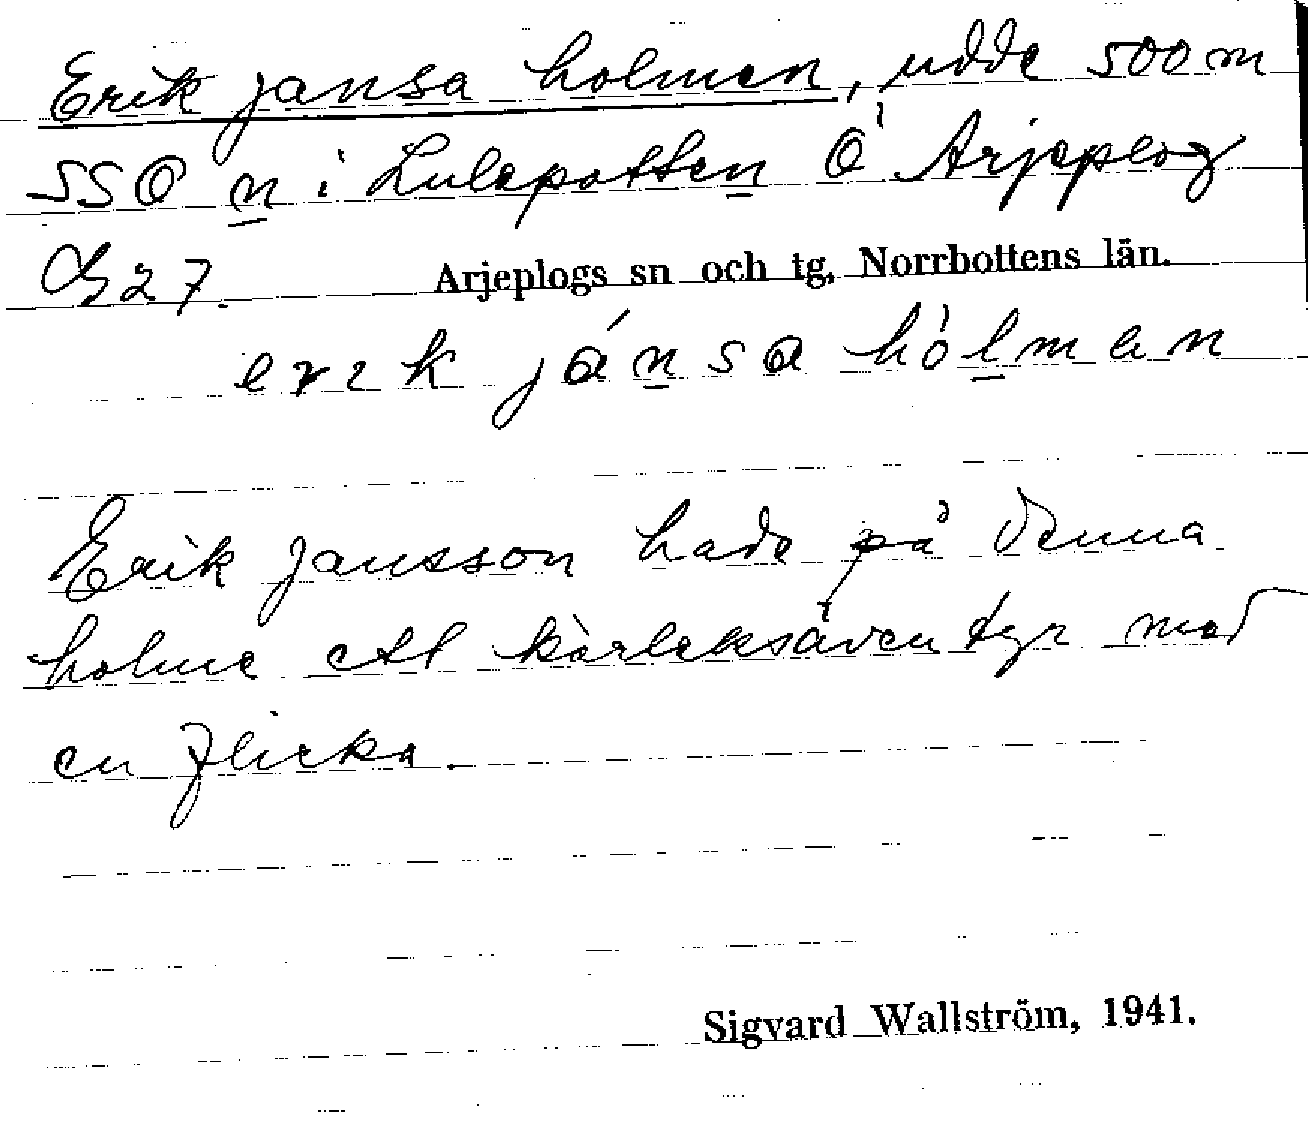 Erik Jansa holmen, udde 500 m
SSO n i Lulepotten Ö Arjeplog
G27.
Arjeplogs sn och tg, Norrbottens län.
erik jánsa hòlman
Erik Jansson hade på denna
holme ett kärleksäventyr med
en flicka.
Sigvard Wallström, 1941.